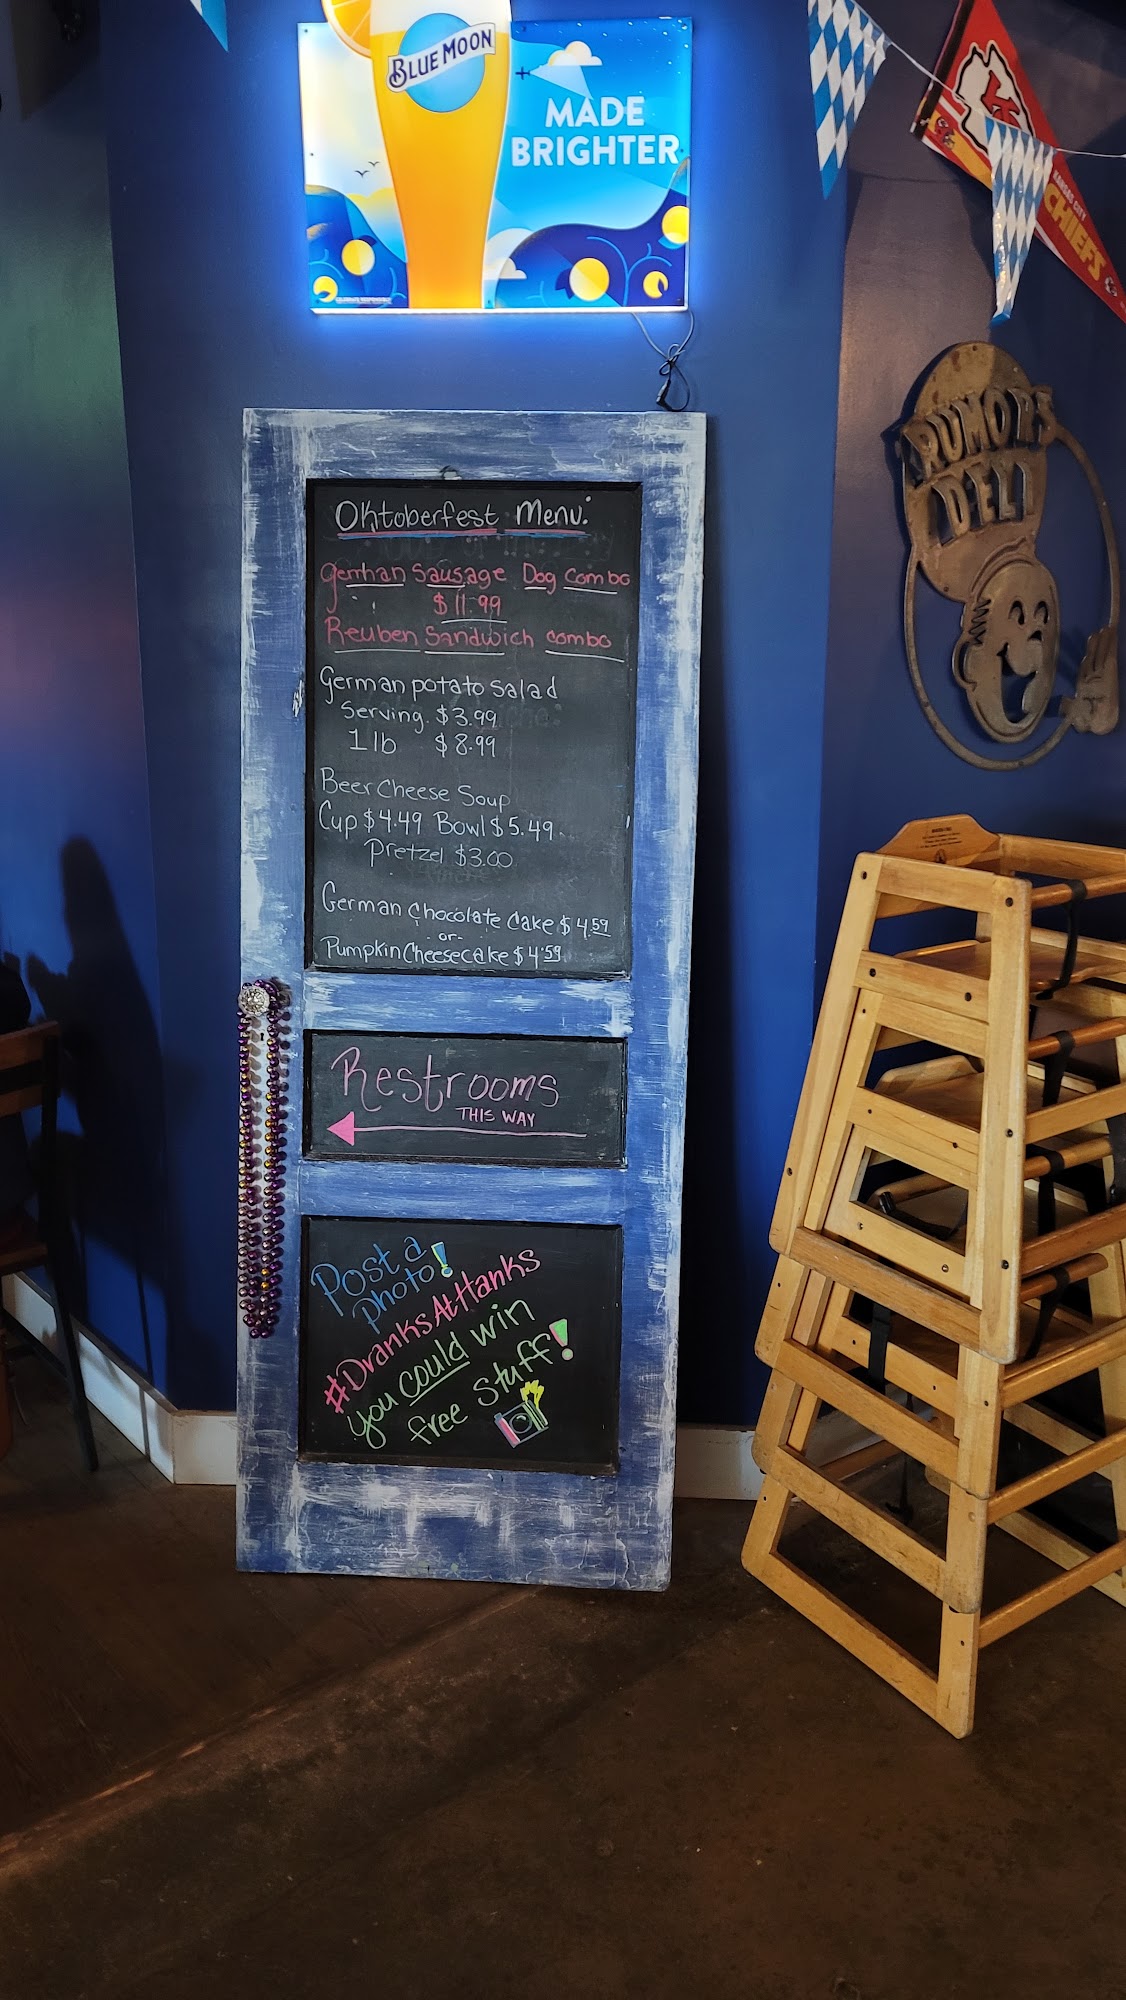 BLUE MOON
MADE
BRIGHTER
KANSAS CITY
CHIEFS
RUMORS
DELI
Oktoberfest Menu:
German Sausage Dog Combo
$11.99
Reuben Sandwich combo
German potato Salad
Serving. $3.99
1 lb $8.99
Beer Cheese Soup
Cup $4.49 Bowl $5.49
Pretzel $3.00
German Chocolate Cake $4.59
-or-
Pumpkin Cheesecake $4.59
Restrooms
THIS WAY
Post a
photo!
#DranksAtHanks
you could win
free Stuff!